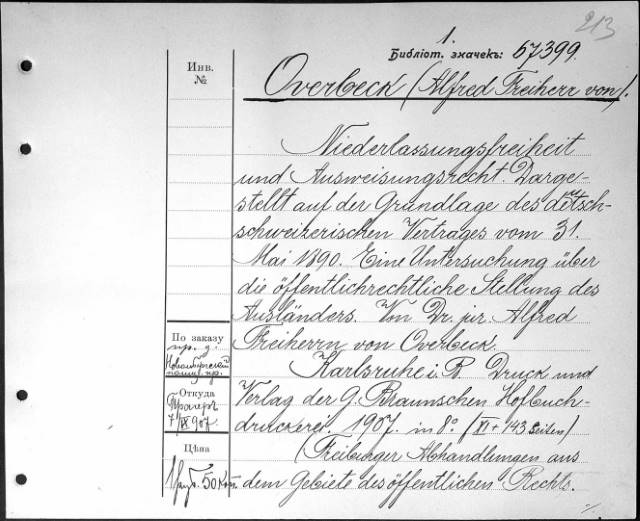 213
1.
Библіот. значекъ: 67399.
Инв.
№
Overbeck (Alfred Freiherr von).
Niederlassungsfreiheit
und Ausweisungsrecht. Darge-
stellt auf der Grundlage des detsch-
schweizerischen Vertrages vom 31.
Mai 1890. Eine Untersuchung über
die öffentlichrechtliche Stellung des
Ausländers. Von Dr. jur. Alfred
Freiherrn von Overbeck.
Karlsruhe i. B. Druck und
Verlag der G. Braunschen Hofbuch-
druckerei. 1907. in 8º. (XI + 143 Seiten)
(Freiburger Abhandlungen aus
dem Gebiete des öffentlichen Rechts.
По заказу
пр. д.
Откуда
7/IX 907.
Цѣна
1 руб. 50 коп.